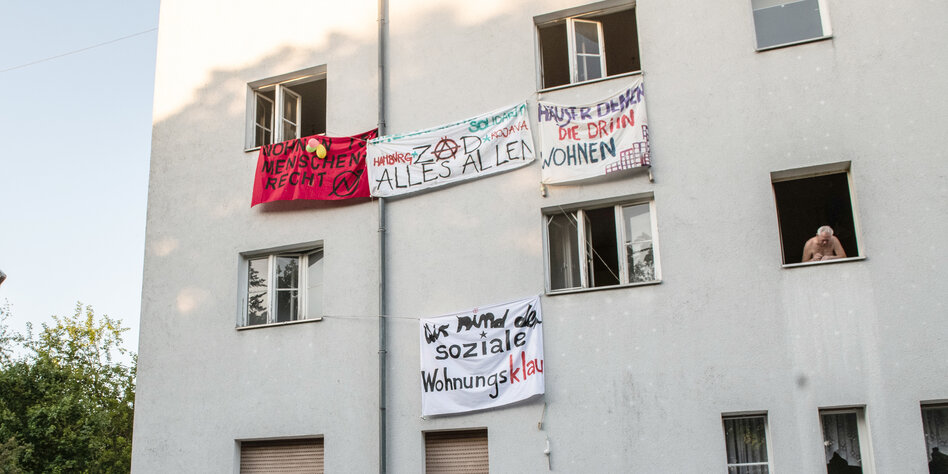 WOHNEN IST
MENSCHEN
RECHT
SOLIDARITÄT
HAMBURG ZAD ROJAVA
ALLES ALLEN
HÄUSER DENEN
DIE DRIIN
WOHNEN
Wir sind der
soziale
Wohnungsklau